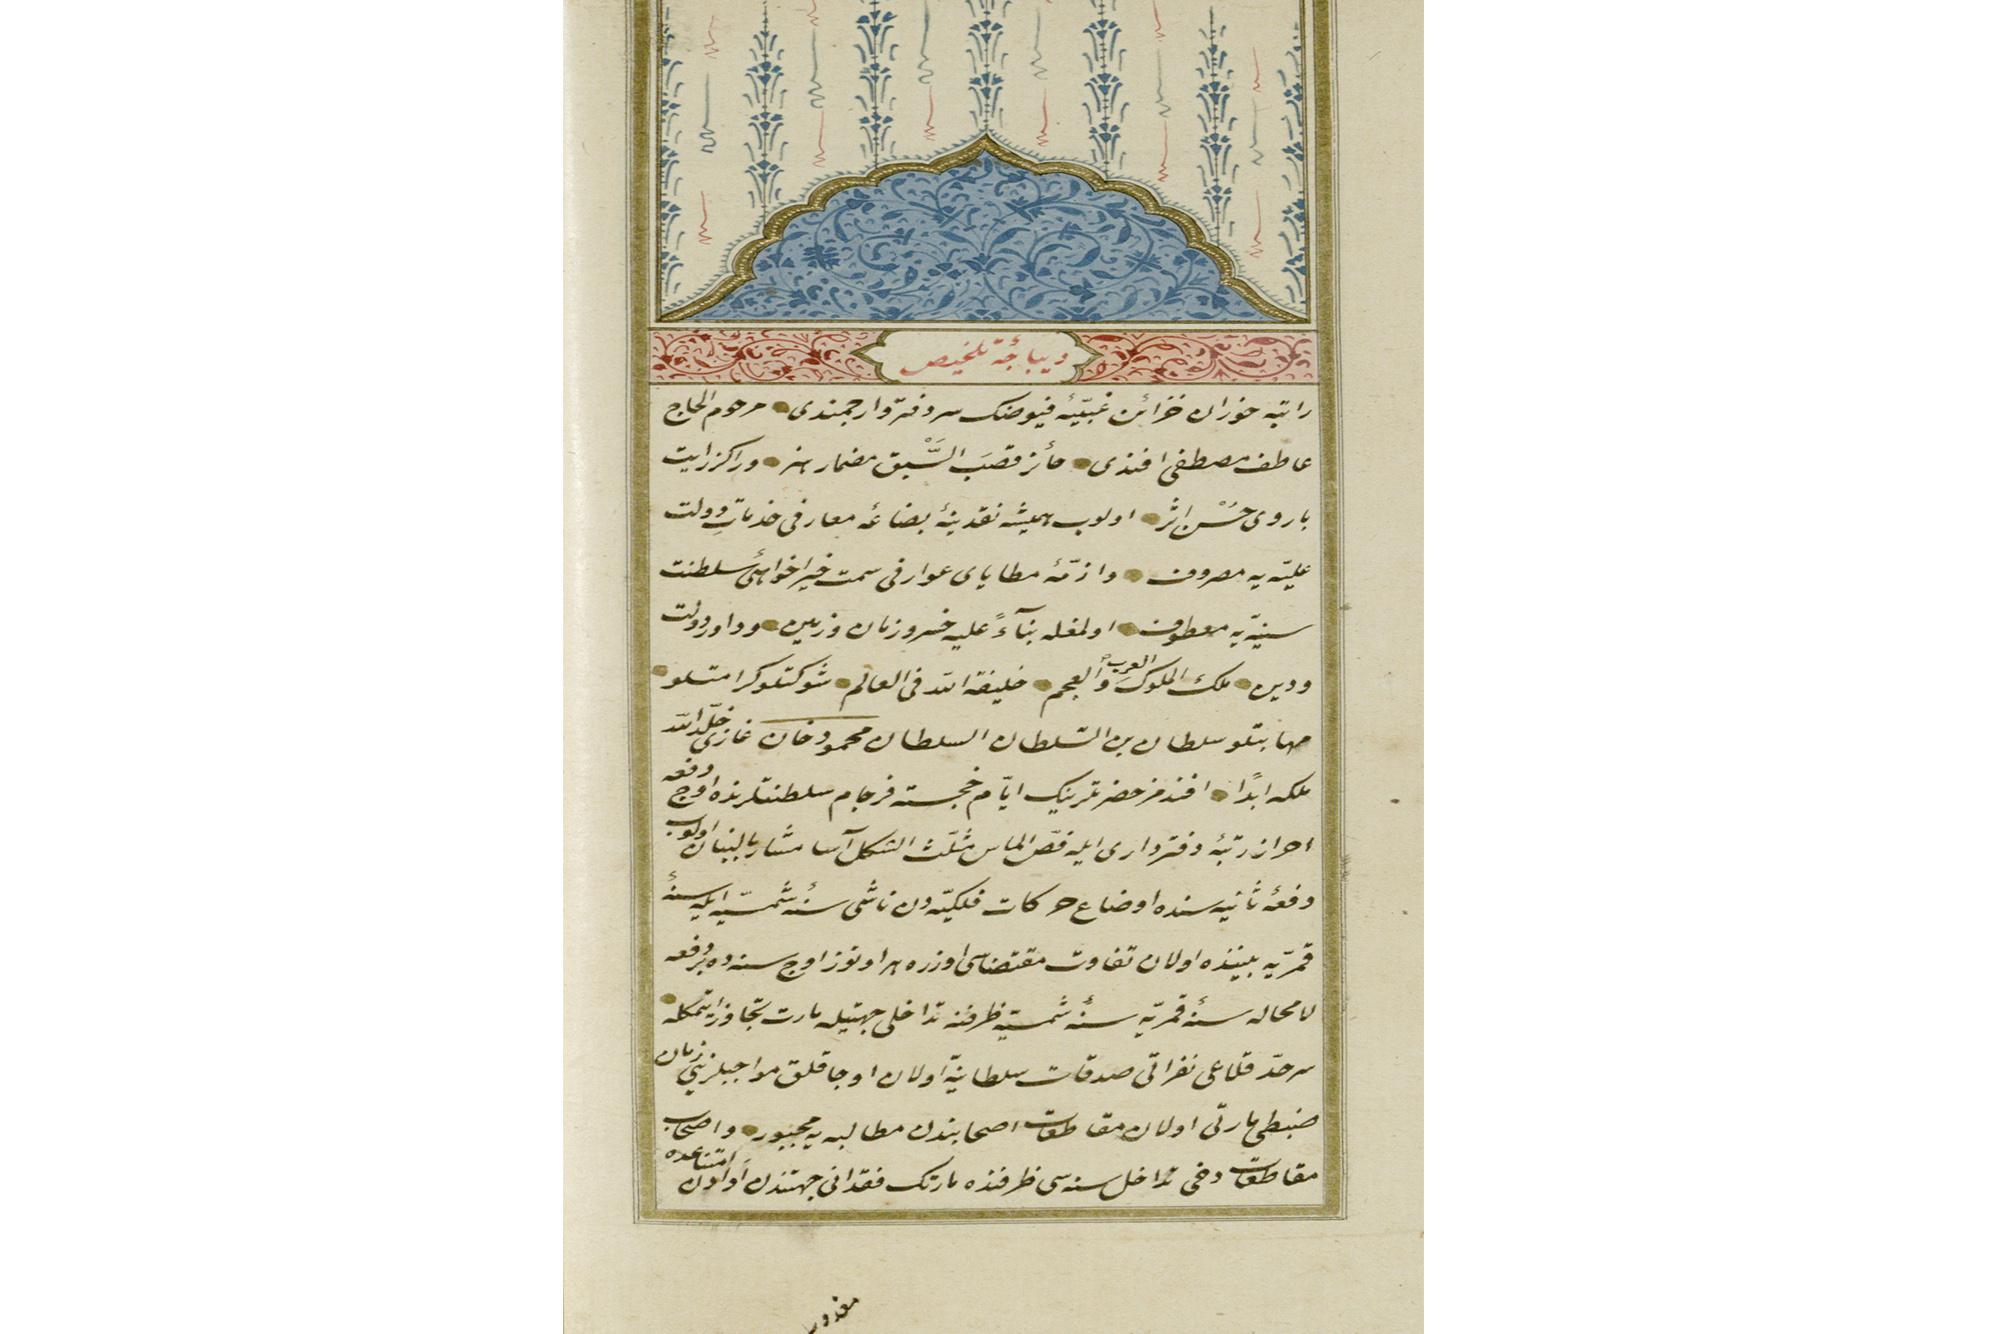 ديباجۀ تلخيص
راتبه خوران خزائن غيبيّۀ فيوضك سردفتر وارجمندى مرحوم الحاج
عاطف مصطفى افندى حائز قصَب السَّبْق مضمار هنر وراكز رايت
باروى حُسْن اثر اولوب هميشه نقدينۀ بضاعۀ معارفى خدمات دولت
عليّه يه مصروف وازمّۀ مطاياى عوارفى سمت خيراخواهئ سلطنت
سنيّه يه معطوف اولمغله بنآءً عليه خسرو زمان وزمين وداور دولت
ودين ملك الملوك العرب والعجم خليفة الله فى العالم شوكتلو كرامتلو
مهابتلو سلطان بن السّلطان السلطان محمود خان غازى خلّد الله
ملكه ابدًا افندمز حضرتلرينك ايّام خجسته فرجام سلطنتلرنده اوج دفعه
احراز رتبۀ دفتردارى ايله فصّ الماس مثلّث الشكل آسا مشار بالبنان اولوب
دفعۀ ثانيه سنده اوضاع حركات فلكيّه دن ناشى سنۀ شمسيّه ايله سنۀ
قمريّه بيننده اولان تفاوت مقتضاسى اوزره هر اوتوز اوج سنه ده بر دفعه
لامحاله سنۀ قمريّه سنۀ شمسيّه ظرفنه تداخلى جهتيله مارت تجاوز ايتمكله
سرحدّ قلاعى نفراتى صدقات سلطانيّه اولان اوجاقلق مواجبلرينى زمان
ضبطى مارتى اولان مقاطعات اصحابندن مطالبه يه مجبور واصحاب
مقاطعات دخى تداخل سنه سى ظرفنده مارتك فقدانى جهتندن اوادن امتناعده
معذور